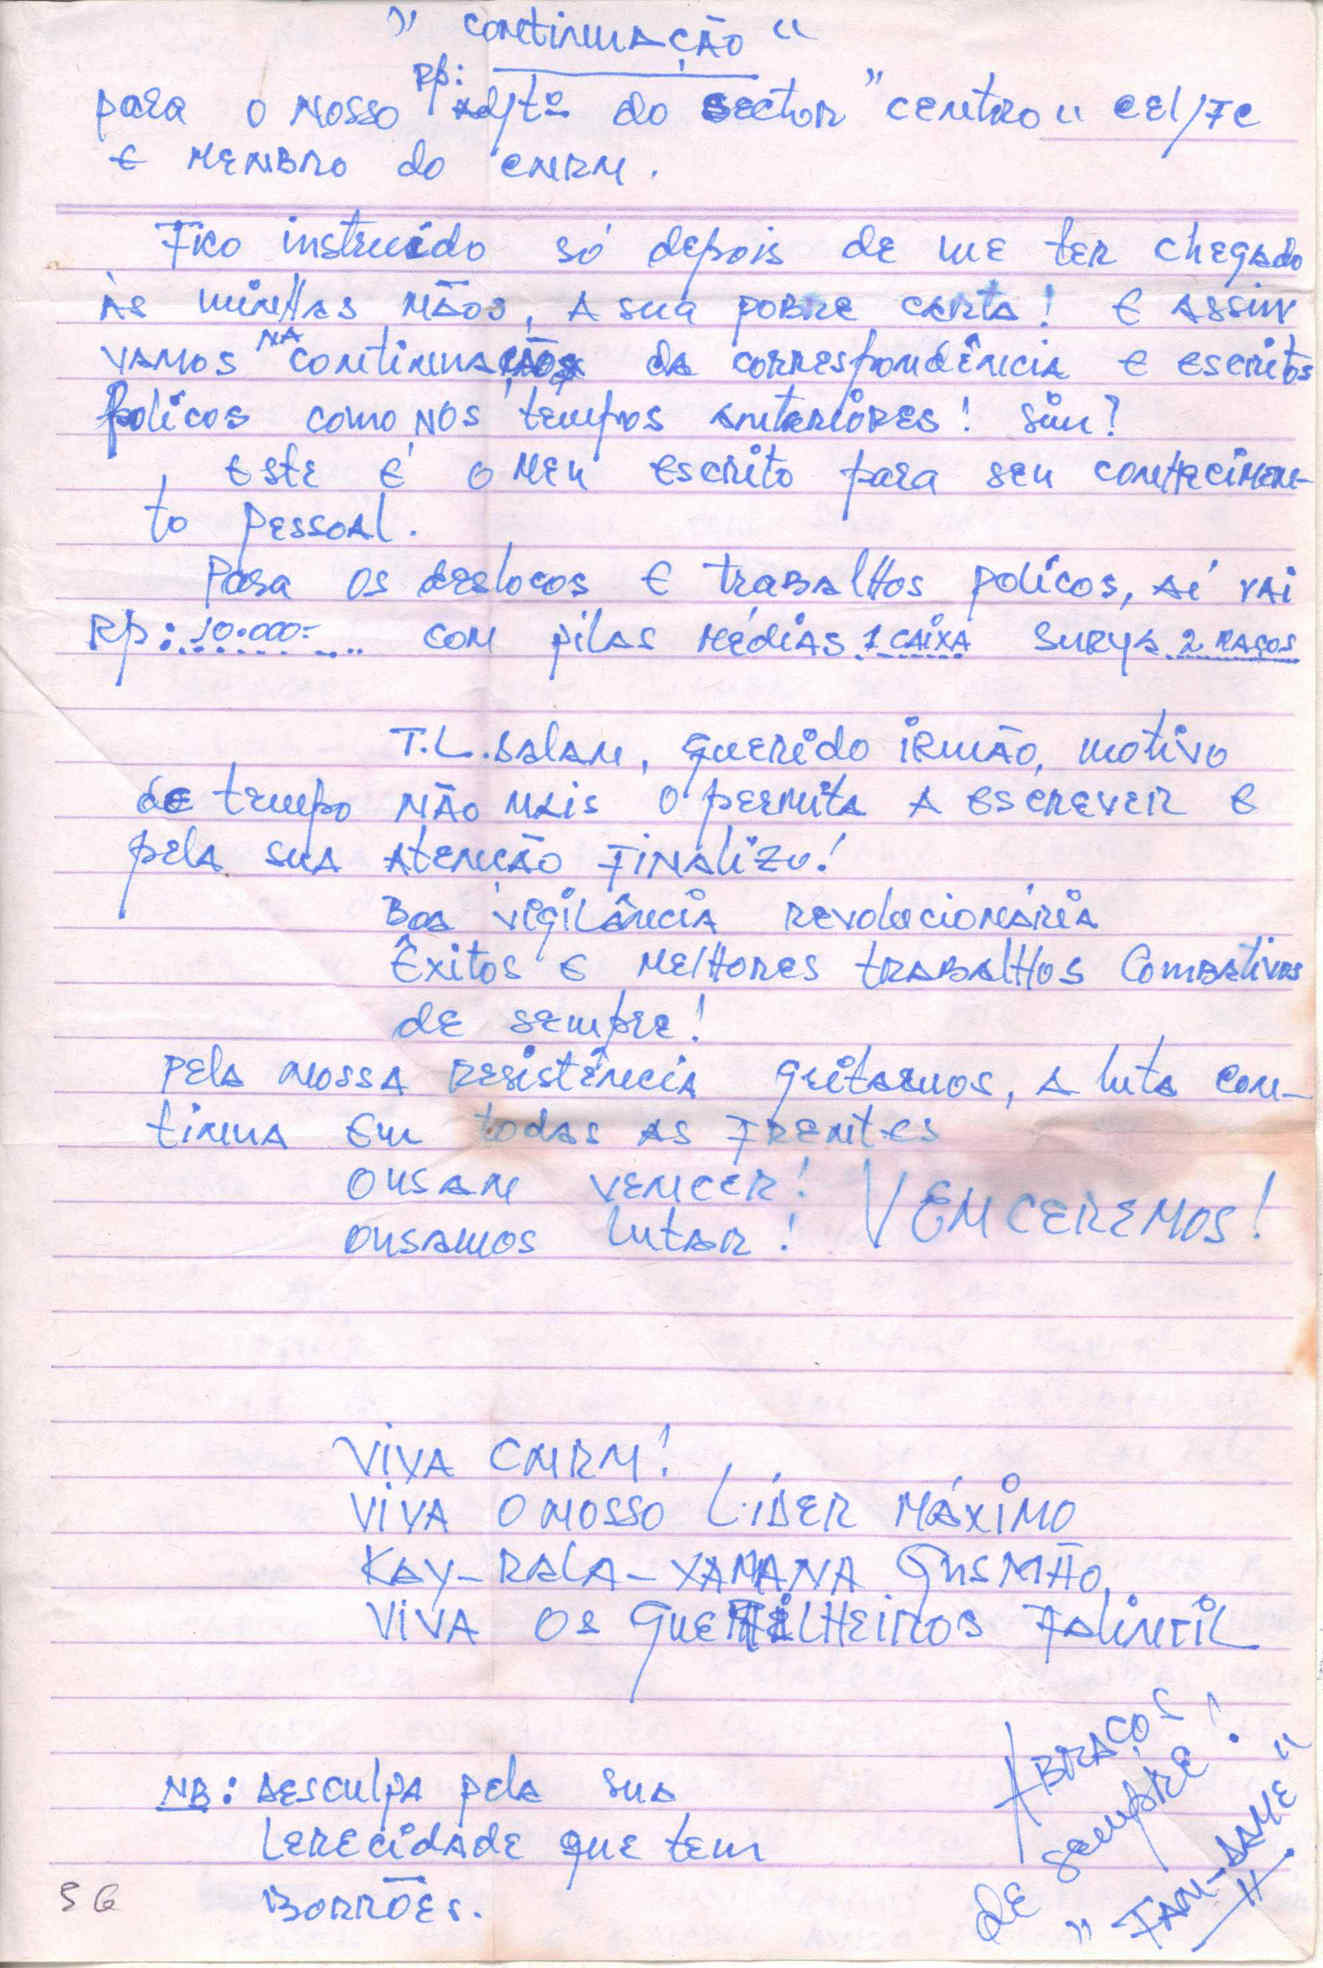 " continuação "
para o nosso Rp: adjtº do sector "centro" CEL/FC
e membro do CNRM.
Fico instruido só depois de me ter chegado
às minhas mãos, a sua pobre carta! E assim
vamos na continuação da correspondência e escritos
polícos como nos tempos anteriores! Sim?
Este é o meu escrito para seu conhecimen-
to pessoal.
Para os deslocos e trabalhos polícos, aí vai
Rp: 10.000- com pilas médias 1 caixa Surya 2 maços
T.L. Salam, querido irmão, motivo
de tempo não mais o permita a escrever e
pela sua atenção finalizo!
Boa vigilância revolucionária
Êxitos e melhores trabalhos combativos
de sempre!
Pela nossa resistência gritamos, a luta con-
tinua em todas as frentes
ousam vencer! VENCEREMOS!
ousamos lutar!
VIVA CNRM!
VIVA O NOSSO LÍDER MÁXIMO
KAY-RALA-XANANA GUSMÃO
VIVA OS GUERRILHEIROS FALINTIL
Abraços
de sempre!
"FAN-SAME"
NB: Desculpa pela sua
lerecidade que tem
borrões.
56